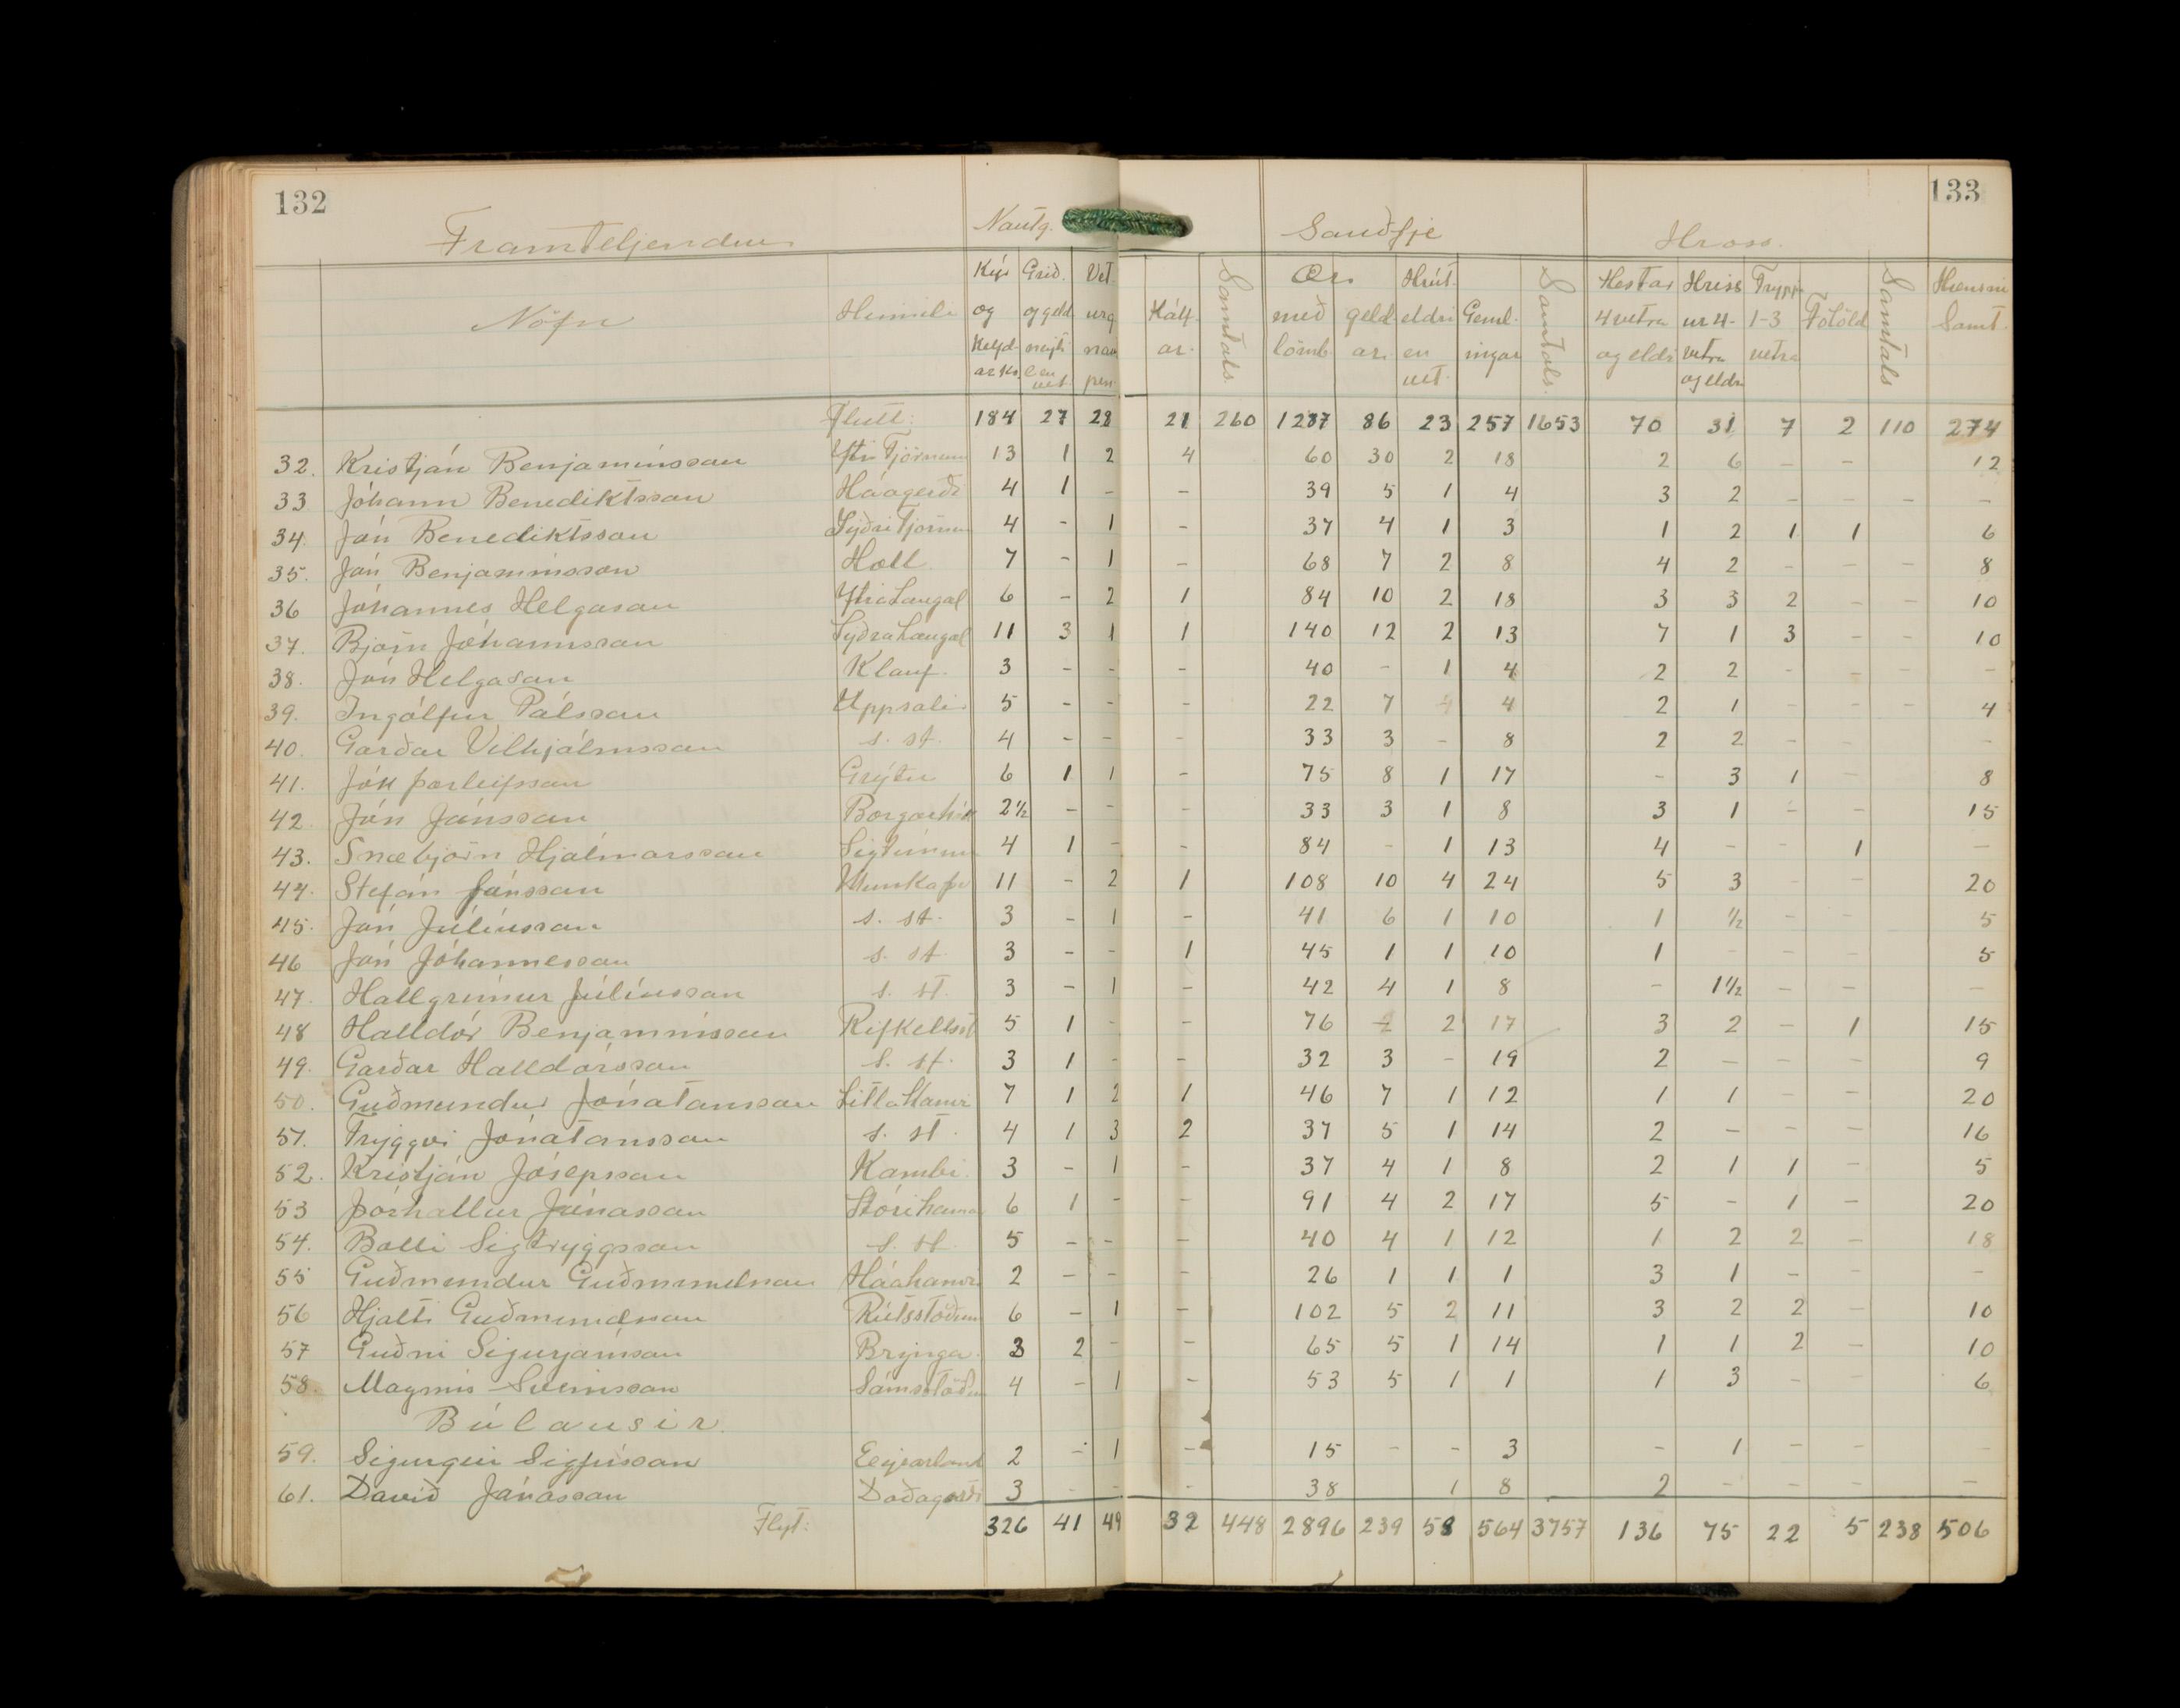 132
133
Framteljendur
Nautg.
Sauðfje
Hross.
Nöfn Heimili Kýr og Kelfd- ar kv. Grið. og geld neyti en vet. Vet urg nau pen Kálf- ar. Samtals. Ær með lömb geld ar. Hrút. eldri en vet. Geml- ingar Samtals. Hestar 4 vetra og eldri Hriss ur 4- vetra og eldri Trypp 1-3 vetra Folöld Samtals Hænsni Samt.
Flutt: 184 27 28 21 260 1287 86 23 257 1653 70 31 7 2 110 274
32. Kristján Benjamínsson Ytri Tjörnum 13 1 2 4 60 30 2 18 2 6 - - 12
33. Jóhann Benediktsson Háagerði 4 1 - - 39 5 1 4 3 2 - - - -
34. Jón Benediktsson Syðri Tjörnum 4 - 1 - 37 4 1 3 1 2 1 1 6
35. Jón Benjamínsson Hóll 7 - 1 - 68 7 2 8 4 2 - - - 8
36 Jóhannes Helgason Ytra Laugal 6 - 2 1 84 10 2 18 3 3 2 - - 10
37. Björn Jóhannsson Syðra Laugal 11 3 1 1 140 12 2 13 7 1 3 - - 10
38. Jón Helgason Klauf. 3 - - - 40 - 1 4 2 2 - - - -
39. Ingólfur Pálsson Uppsalir 5 - - - 22 7 4 4 2 1 - - - 4
40. Garðar Vilhjálmsson s. st. 4 - - - 33 3 - 8 2 2 - - -
41. Jók Þorleifsson Grýtu 6 1 1 - 75 8 1 17 - 3 1 - 8
42. Jón Jónsson Borgarhól 2½ - - - 33 3 1 8 3 1 - - 15
43. Snæbjörn Hjálmarsson Sigtúnum 4 1 - - 84 - 1 13 4 - - 1 -
44. Stefán Jónsson Munkaþv 11 - 2 1 108 10 4 24 5 3 - - 20
45. Jón Júlíusson s. st. 3 - 1 - 41 6 1 10 1 ½ - - 5
46 Jón Jóhannesson s. st. 3 - - 1 45 1 1 10 1 - - - 5
47. Hallgrímur Júlíusson s. st. 3 - 1 - 42 4 1 8 - 1½ - - -
48 Halldór Benjamínsson Rifkellsst 5 1 - - 76 2 2 17 3 2 - 1 15
49. Garðar Halldórsson s. st. 3 1 - - 32 3 - 19 2 - - - 9
50. Guðmundur Jónatansson Litla Hamri 7 1 2 1 46 7 1 12 1 1 - - 20
51. Tryggvi Jónatansson s. st. 4 1 3 2 37 5 1 14 2 - - - 16
52. Kristján Jósepsson Kambi. 3 - 1 - 37 4 1 8 2 1 1 - 5
53 Þórhallur Jónasson Stórihamar 6 1 - - 91 4 2 17 5 - 1 - 20
54. Bolli Sigtryggsson s. st. 5 - - - 40 4 1 12 1 2 2 - 18
55 Guðmundur Guðmundsson Háahamri 2 - - - 26 1 1 1 3 1 - - -
56 Hjalti Guðmundsson Rútsstöðum 6 - 1 - 102 5 2 11 3 2 2 - 10
57 Guðni Sigurjónsson Brynga. 3 2 - - 65 5 1 14 1 1 2 - 10
58. Magnús Sveinsson Sámsstöðum 4 - 1 - 53 5 1 1 1 3 - - 6
Búlausir.
59. Sigurgeir Sigfússon Eyrarland 2 - 1 - 15 - - 3 - 1 - - -
61. Davíð Jónasson Daðagerði 3 - - - 38 1 8 2 - - - -
Flyt: 326 41 49 32 448 2896 239 58 564 3757 136 75 22 5 238 506